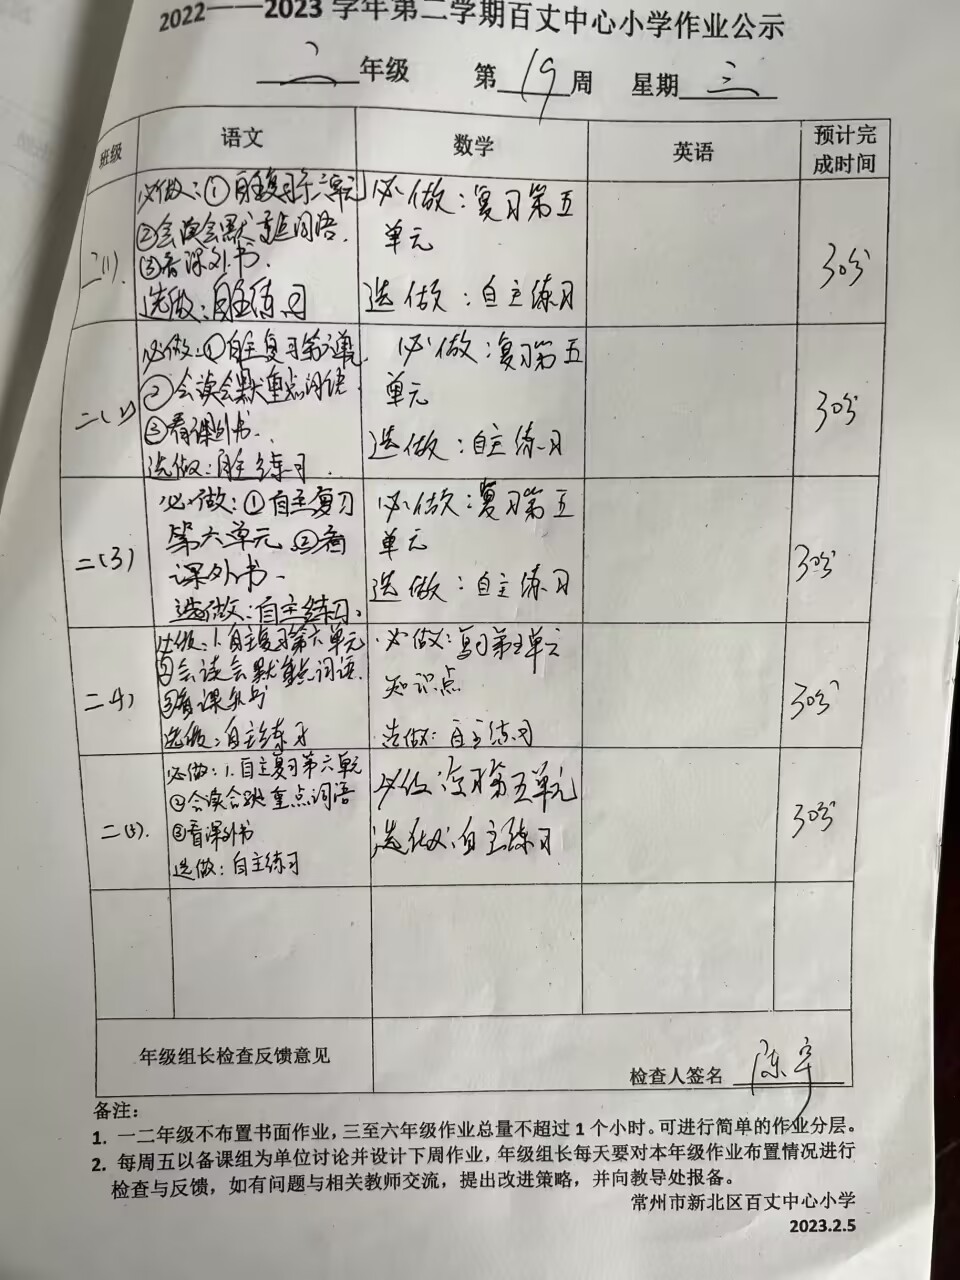 2022——2023 学年第二学期百丈中心小学作业公示
二 年级 第 19 周 星期 三
班级 语文 数学 英语 预计完成时间
二(1).
必做：①自主复习第六单元
②会读会默重点词语.
③看课外书.
选做：自主练习
必做：复习第五
单元
选做：自主练习
30分
二(2)
必做：①自主复习第六单元
②会读会默重点词语
③看课外书.
选做：自主练习.
必做：复习第五
单元
选做：自主练习
30分
二(3)
必做：①自主复习
第六单元 ②看
课外书.
选做：自主练习.
必做：复习第五
单元
选做：自主练习
30分
二(4)
必做：1.自主复习第六单元
②会读会默重点词语
③看课外书
选做：自主练习
必做：复习第五单元
知识点
选做：自主练习
30分
二(5).
必做：1.自主复习第六单元
②会读会默重点词语
③看课外书
选做：自主练习
必做：复习第五单元
选做：自主练习
30分
年级组长检查反馈意见
检查人签名
备注：
1. 一二年级不布置书面作业，三至六年级作业总量不超过 1 个小时。可进行简单的作业分层。
2. 每周五以备课组为单位讨论并设计下周作业，年级组长每天要对本年级作业布置情况进行
检查与反馈，如有问题与相关教师交流，提出改进策略，并向教导处报备。
常州市新北区百丈中心小学
2023.2.5